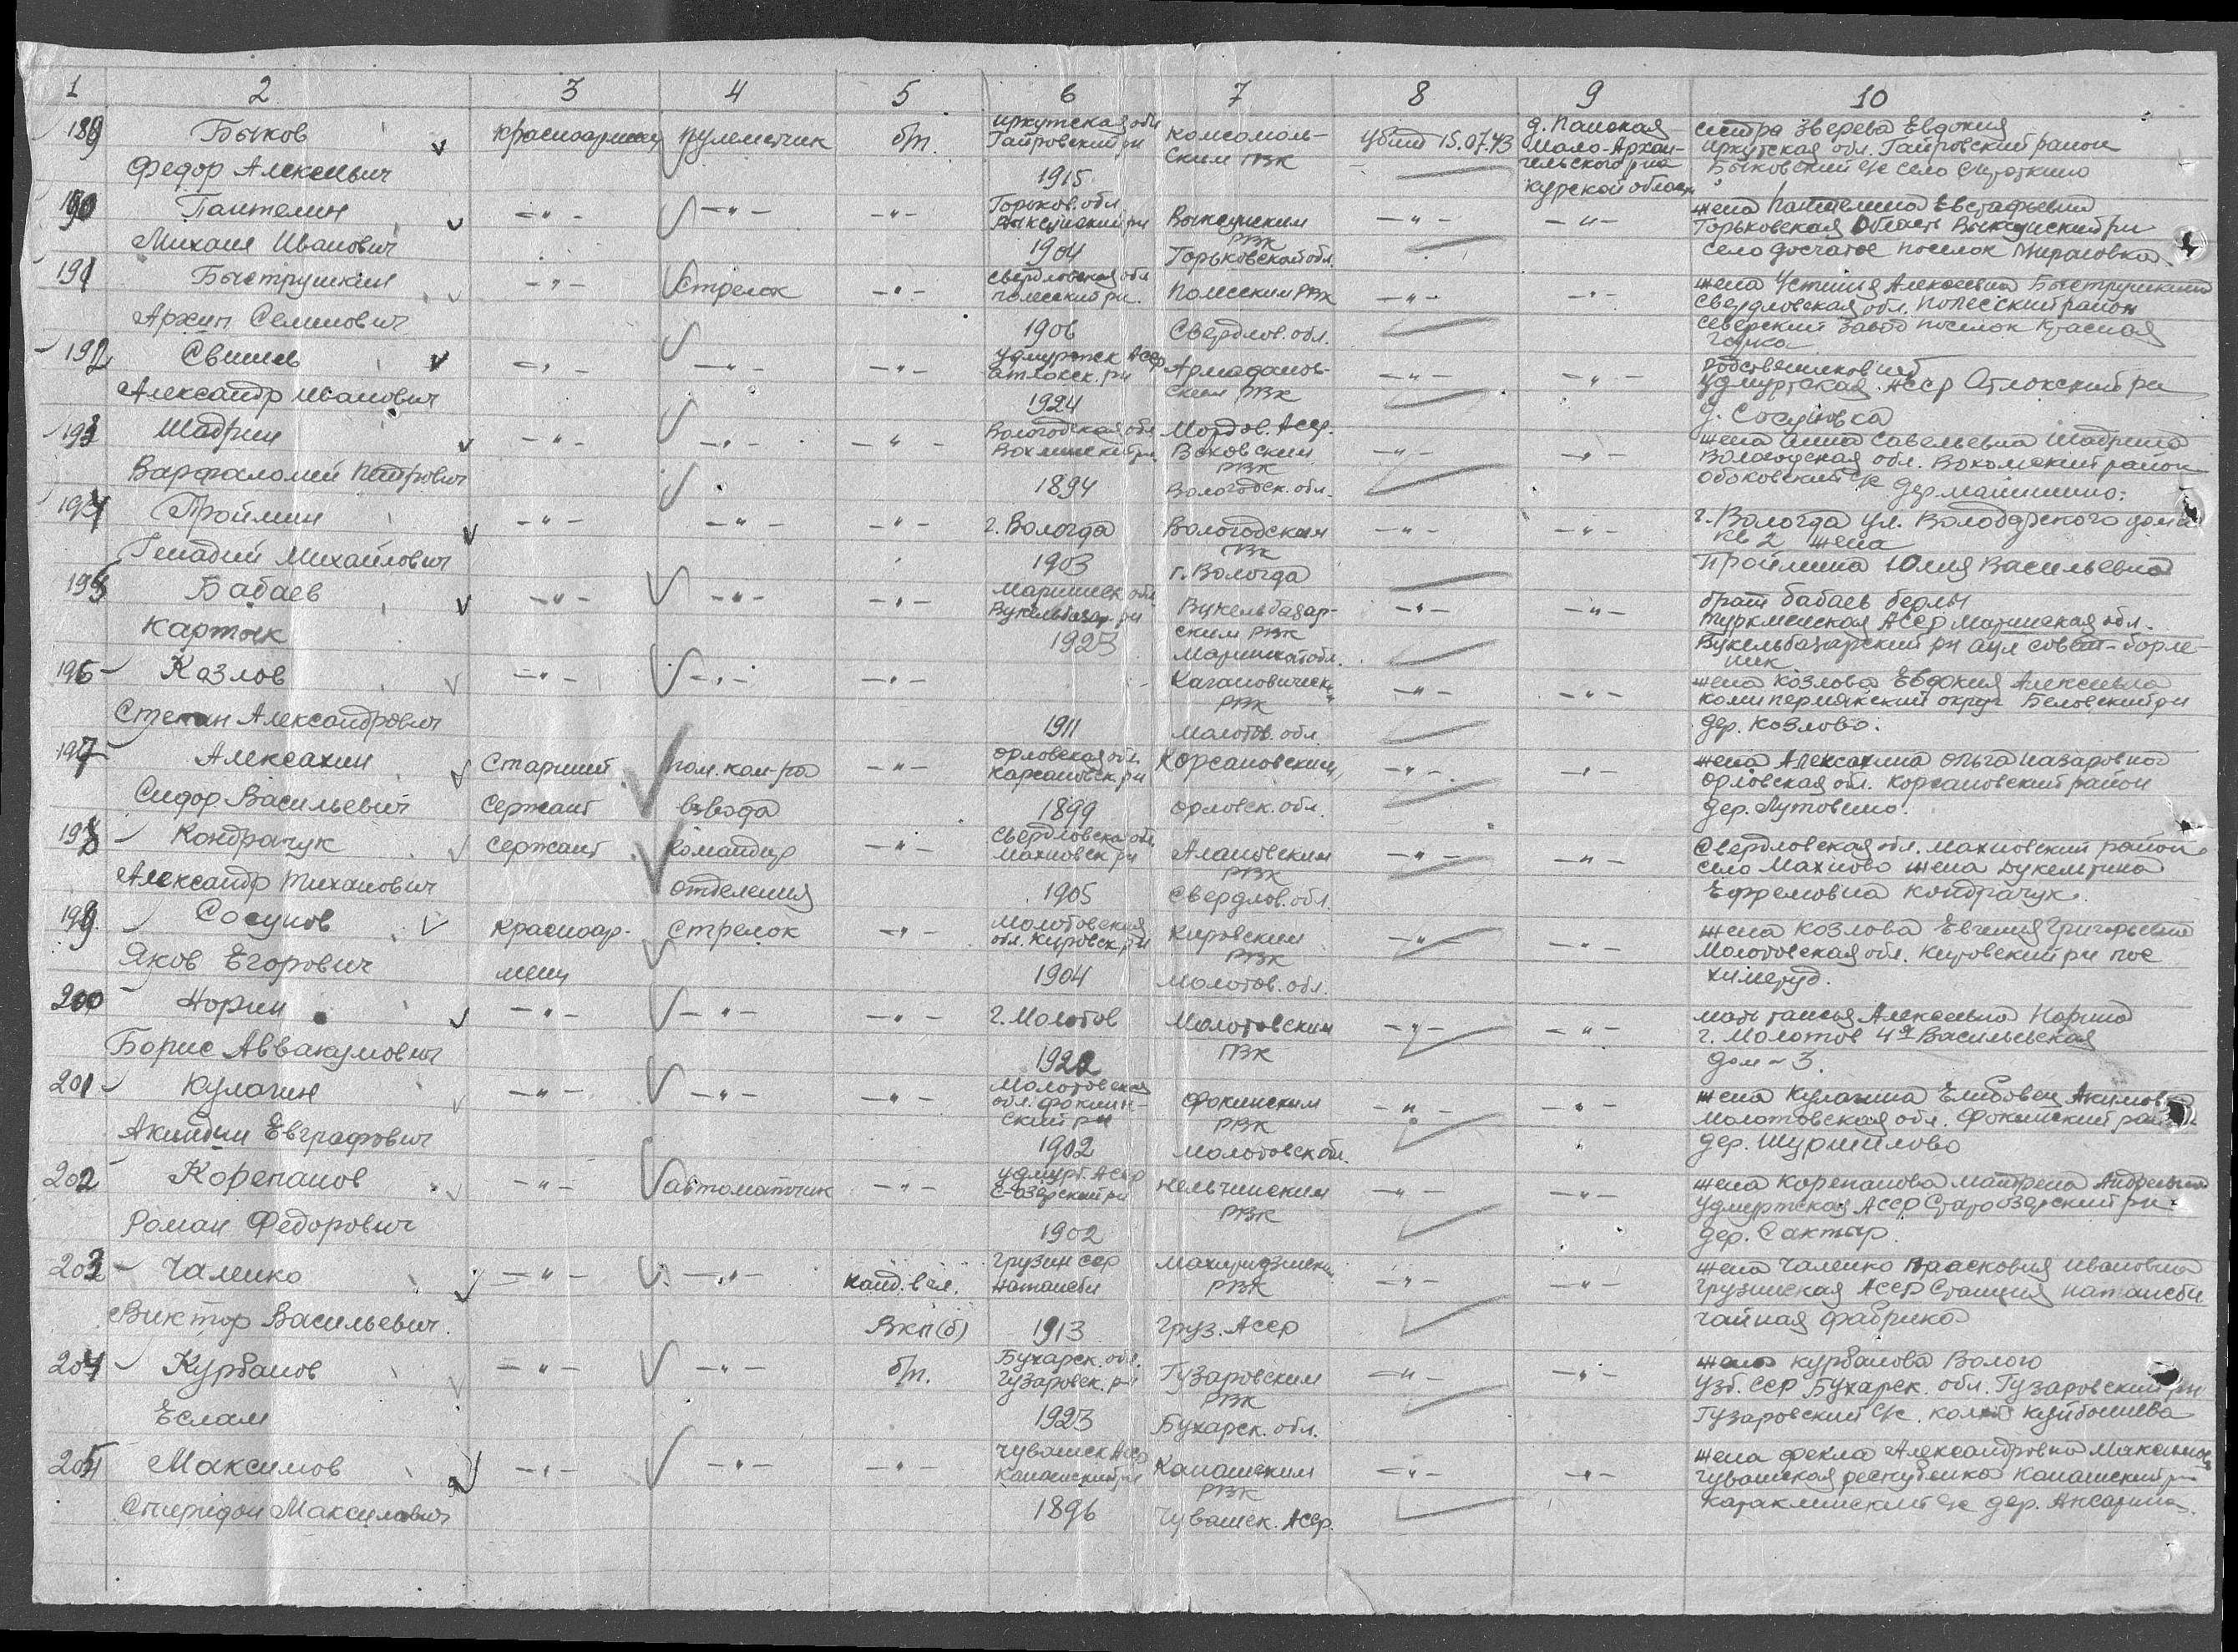 1 2 3 4 5 6 7 8 9 10
189 Быков красноармеец пулеметчик б/п. Иркутская обл Комсомоль- убит 15.07.43 д. Панская сестра Зверева Евдокия
Федор Алексеевич Гаировский рн ским РВК Мало-Архан- Иркутская обл. Гаировский район
1915 гельского р-на Быковский с/с село Сироткино
Курской области
190 Пантелин -"- -"- -"- Горьков. обл. Выксунским -"- -"- жена Пантелина Евстафьевна
Михаил Иванович Выксунский рн РВК Горьковская область Выксунский рн
1904 Горьковской обл. село Досчатое поселок
191 Быструшкин -"- стрелок -"- Свердловская обл Полесским РВК -"- -"- жена Устиния Алексеевна Быструшкина
Архип Семенович Полесский рн. Свердлов. обл. Свердловская обл. Полесский район
1906 Северский завод поселок Красная
горка
192 Свинин -"- -"- -"- Удмуртск АССР -"- -"- родственников нет
Александр Иванович ским РВК Удмуртская АССР рн
1924 д. Сосновка
193 Шадрин -"- -"- -"- Вологодская обл Мордов. АССР. -"- -"- жена Анна Савельевна Шадрина
Варфаломей Петрович Вохомский рн. РВК Вологодская обл. Вохомский район
1894 Вологодск. обл. с/с дер
194 Проймин -"- -"- -"- г. Вологда Вологодским -"- -"- г. Вологда ул. Володарского дом
Генадий Михайлович 1903 ГВК кв 2 жена
г. Вологда Проймина Юлия Васильевна
195 Бабаев -"- -"- -"- Марийск обл -"- -"- брат Бабаев Берды
Картык рн ским РВК Туркменская АССР Марийская обл.
1923 Марийской обл. рн аул совет
196 Козлов -"- -"- -"- Кагановическ -"- -"- жена Козлова Евдокия Алексеевна
Степан Александрович РВК Коми пермякский округ Беловский рн
1911 Молотов. обл. дер. Козлово.
197 Алексахин Старший пом. ком-ра -"- Орловская обл Корсаковским -"- -"- жена Алексахина Ольга Назаровна
Сидор Васильевич Сержант взвода Карсаковск. рн Орловская обл. Корсаковский район
1899 Орловск. обл. дер. Лутовено.
198 Кондрачук Сержант Командир -"- Свердловская обл Алапаевским -"- -"- Свердловская обл. Махневский район
Александр Тиханович отделения Махневск рн РВК село Махнево жена
1905 Свердлов. обл. Ефремовна Кондрачук.
199 Сосунов Красноар- Стрелок -"- Молотовская Кировским -"- -"- жена Козлова Евгения Григорьевна
Яков Егорович меец обл. Кировск. рн РВК Молотовская обл. Кировский рн пос
1904 Молотов. обл.
200 Норин -"- -"- -"- г. Молотов Молотовским -"- -"- мать Таисья Алексеевна Норина
Борис Аввакумович 1922 ГВК г. Молотов 4я Васильевская
дом - 3.
201 Кулагин -"- -"- -"- Молотовская Фокинским -"- -"- жена Кулагина Акимов
Акиндин Евграфович обл. Фокин- РВК Молотовская обл. Фокинский рай
ский рн Молотовск обл. дер. Шурмилово
1902
202 Корепанов -"- автоматчик -"- Удмурт. АССР -"- -"- жена Корепанова Матрена Андреевна
Роман Федорович С-Озерский рн РВК Удмуртская АССР Старо Озерский рн
1902 дер. Сактыр.
203 Чаленко -"- -"- Канд. в чл. Грузин ССР Махарадзеск -"- -"- жена Чаленко Прасковия Ивановна
Виктор Васильевич. ВКП(б) Натанеби РВК Грузинская АССР Станция Натанеби
1913 Груз. АССР чайная фабрика
204 Курбанов -"- -"- б/п. Бухарск. обл. Гузаровским -"- -"- жена Курбанова
Еслам Гузаровск. р-н РВК Узб. ССР Бухарск. обл. Гузаровский рн
1923 Бухарск. обл. Гузаровский с/с. Куйбышева
205 Максимов -"- -"- -"- Чувашск АССР Канашским -"- -"- жена Фекла Александровна Максимов
Спиридон Максимович Канашский рн РВК Чувашская республика Канашский рн
1896 Чувашск. АССР. с/с дер.